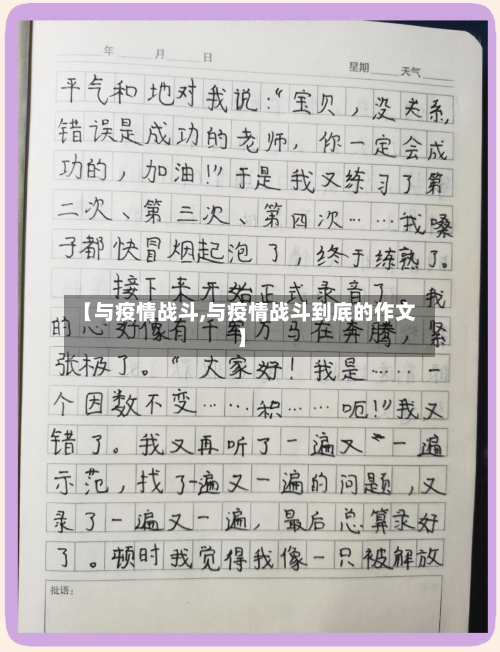 年 月 日
星期 天气
平气和地对我说:“宝贝,没关系,
错误是成功的老师,你一定会成
功的,加油!”于是我又练习了第
二次、第三次、第四次……我嗓
子都快冒烟起泡了,终于练熟了。
接下来开始正式录音了。我
【与疫情战斗,与疫情战斗到底的作文
】
的心好像有千军万马在奔腾,紧
张极了。“大家好!我是……一
个因数不变……积……呃!”我又
错了。我又再听了一遍又一遍
示范,找了一遍又一遍的问题,又
录了一遍又一遍,最后总算录好
了。顿时我觉得我像一只被解放
批语: